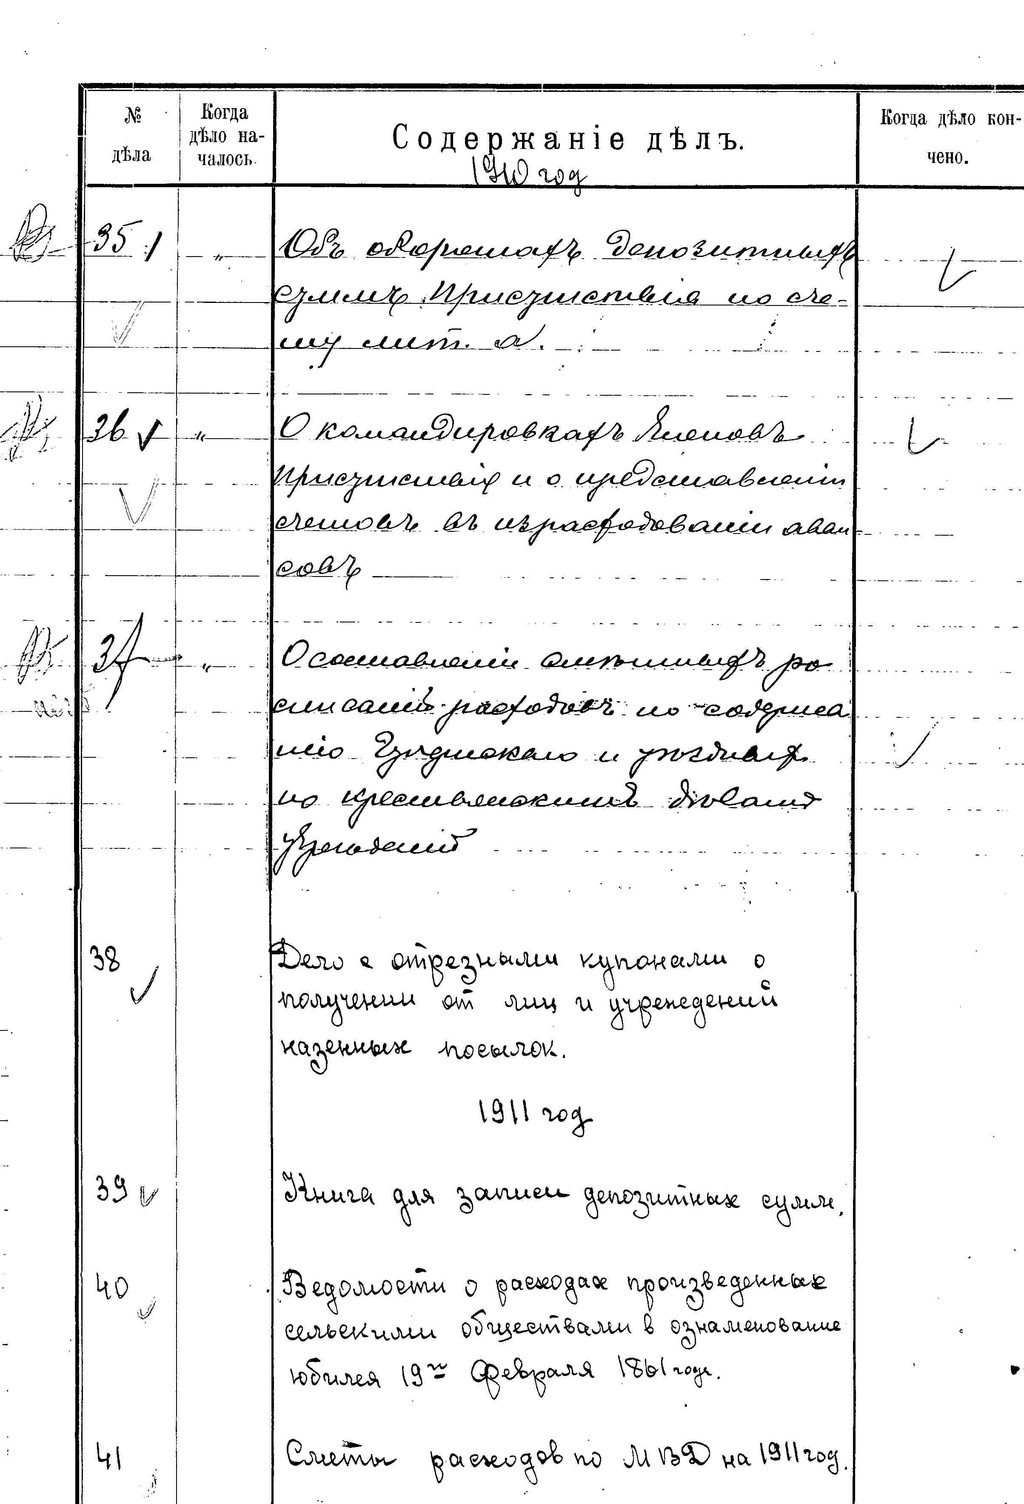 № дѣла
Когда дѣло на-
чалось.
Содержаніе дѣлъ.
Когда дѣло кон-
чено.
1910 год
35 "
Объ оборотахъ депозитныхъ
суммъ Присутствія по сче-
ту лит. а.
36 "
О командировкахъ Членовъ
Присутствія и о представленіи
счетовъ въ израсходованіи аван-
совъ
37 "
О составленіи смѣтныхъ ро
списаній расходовъ по содержа
нію Губернскаго и уѣздныхъ
по крестьянскимъ дѣламъ
учрежденій
38
Дело с отрезными купонами о
получении от лиц и учреждений
казенных посылок.
1911 год
39
Книга для записи депозитных сумм.
40
Ведомости о расходах произведенных
сельскими обществами в ознаменование
юбилея 19го Февраля 1861 года.
41
Сметы расходов по МВД на 1911 год.